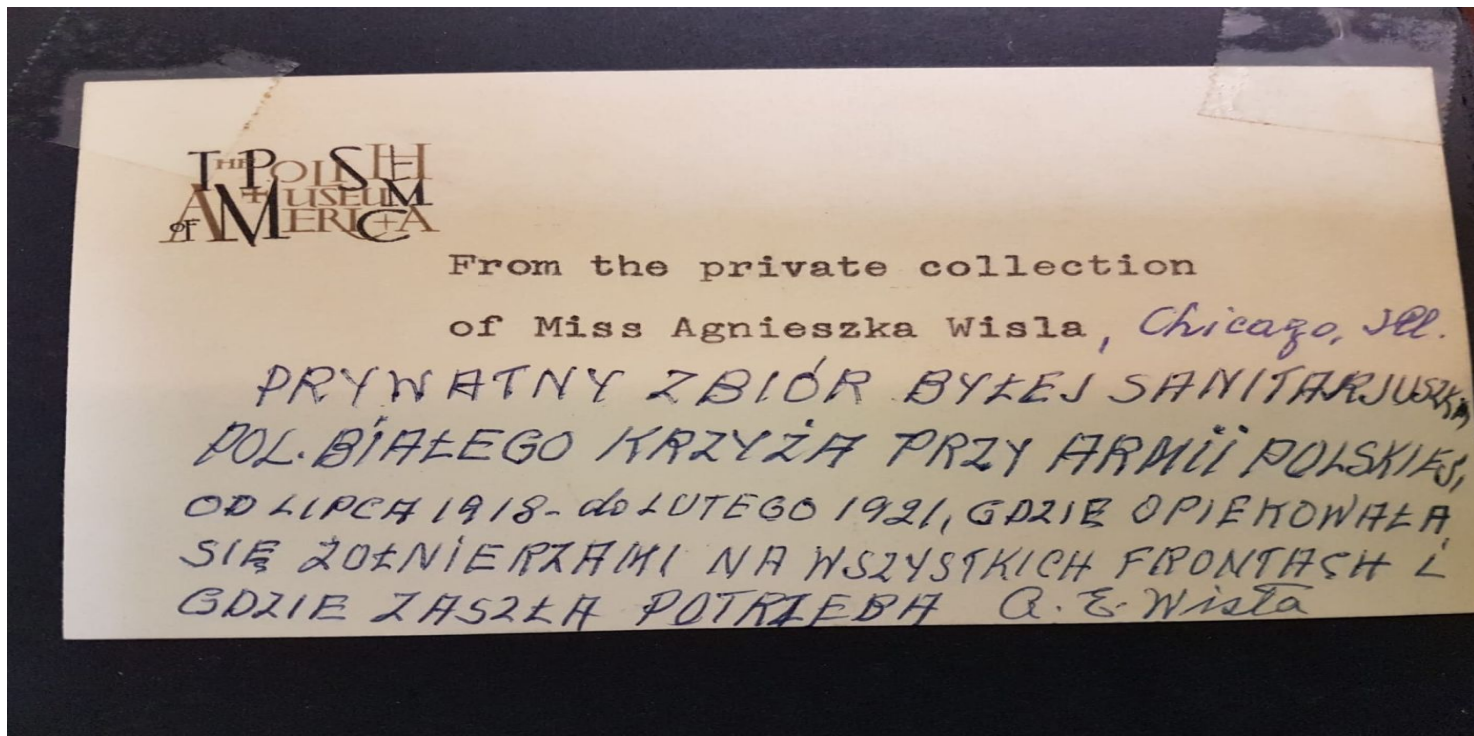 THE POLISH
MUSEUM
OF AMERICA
From the private collection
of Miss Agnieszka Wisla, Chicago, Ill.
PRYWATNY ZBIÓR BYŁEJ SANITARJUSZKI,
POL. BIAŁEGO KRZYŻA PRZY ARMII POLSKIEJ,
OD LIPCA 1918 - do LUTEGO 1921, GDZIE OPIEKOWAŁA
SIĘ ŻOŁNIERZAMI NA WSZYSTKICH FRONTACH i
GDZIE ZASZŁA POTRZEBA A. E. Wisła